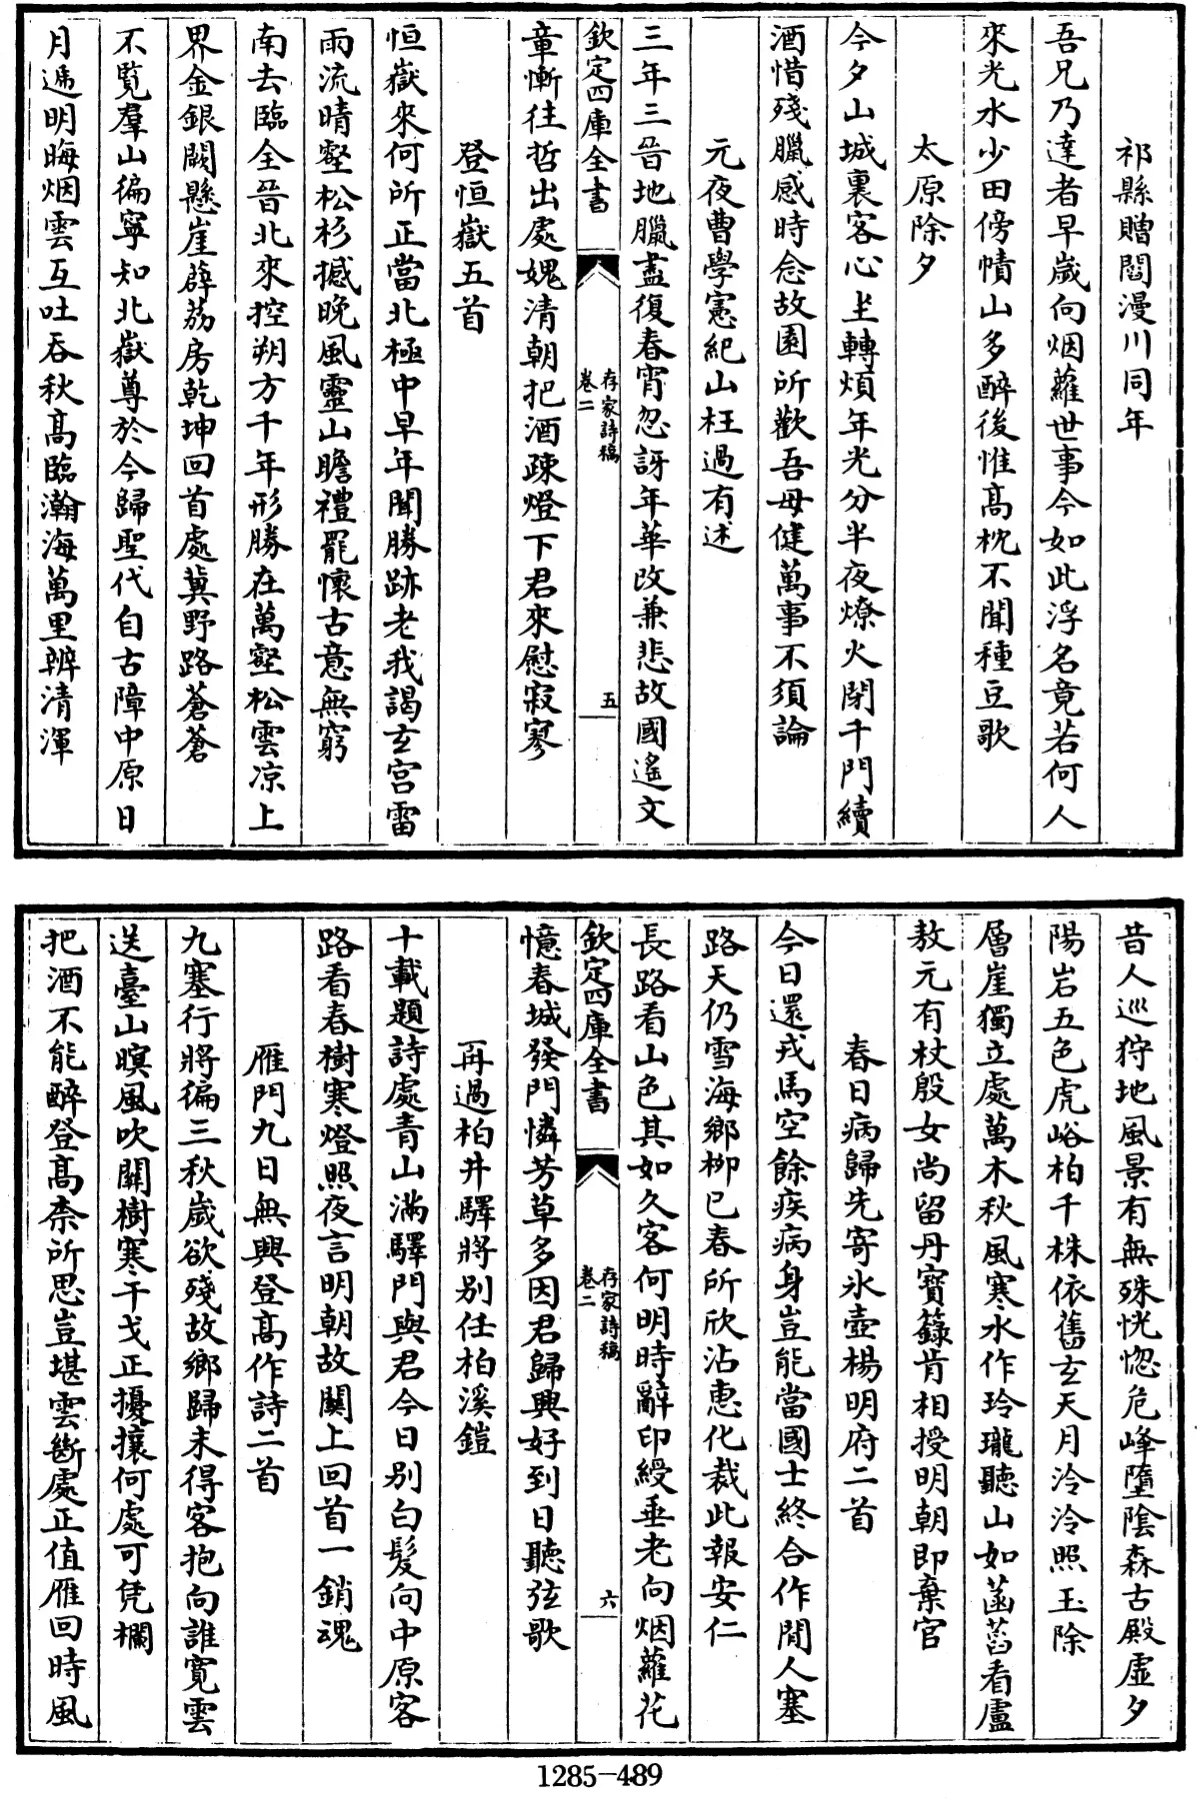 祁縣贈閻漫川同年
吾兄乃達者早歲向烟蘿世事今如此浮名竟若何人
來光水少田傍幘山多醉後惟高枕不聞種豆歌
太原除夕
今夕山城裏客心坐轉煩年光分半夜燎火閉千門續
酒惜殘臘感時念故園所歡吾母健萬事不須論
元夜曹學憲紀山枉過有述
三年三晉地臘盡復春宵忽訝年華改兼悲故國遙文
欽定四庫全書
存家詩稿
卷二
五
章慚往哲出處媿清朝把酒疎燈下君來慰寂寥
登恒嶽五首
恒嶽來何所正當北極中早年聞勝跡老我謁玄宮雷
雨流晴壑松杉撼晚風靈山瞻禮罷懷古意無窮
南去臨全晉北來控朔方千年形勝在萬壑松雲凉上
界金銀闕懸崖薜荔房乾坤回首處冀野路蒼蒼
不覧羣山徧寧知北嶽尊於今歸聖代自古障中原日
月遞明晦烟雲互吐吞秋高臨瀚海萬里辨清渾
昔人巡狩地風景有無殊恍惚危峰墮陰森古殿虛夕
陽岩五色虎峪柏千株依舊玄天月泠泠照玉除
層崖獨立處萬木秋風寒水作玲瓏聽山如菡萏看盧
敖元有杖殷女尚留丹寶籙肯相授明朝即棄官
春日病歸先寄氷壺楊明府二首
今日還戎馬空餘疾病身豈能當國士終合作閒人塞
路天仍雪海鄉柳已春所欣沾惠化裁此報安仁
長路看山色其如久客何明時辭印綬垂老向烟蘿花
欽定四庫全書
存家詩稿
卷二
六
憶春城發門憐芳草多因君歸興好到日聽弦歌
再過柏井驛將別任柏溪鎧
十載題詩處青山滿驛門與君今日別白髮向中原客
路看春樹寒燈照夜言明朝故關上回首一銷魂
雁門九日無興登高作詩二首
九塞行將徧三秋歲欲殘故鄉歸未得客抱向誰寛雲
送臺山暝風吹關樹寒干戈正擾攘何處可凭欄
把酒不能醉登高柰所思豈堪雲斷處正值雁回時風
1285-489